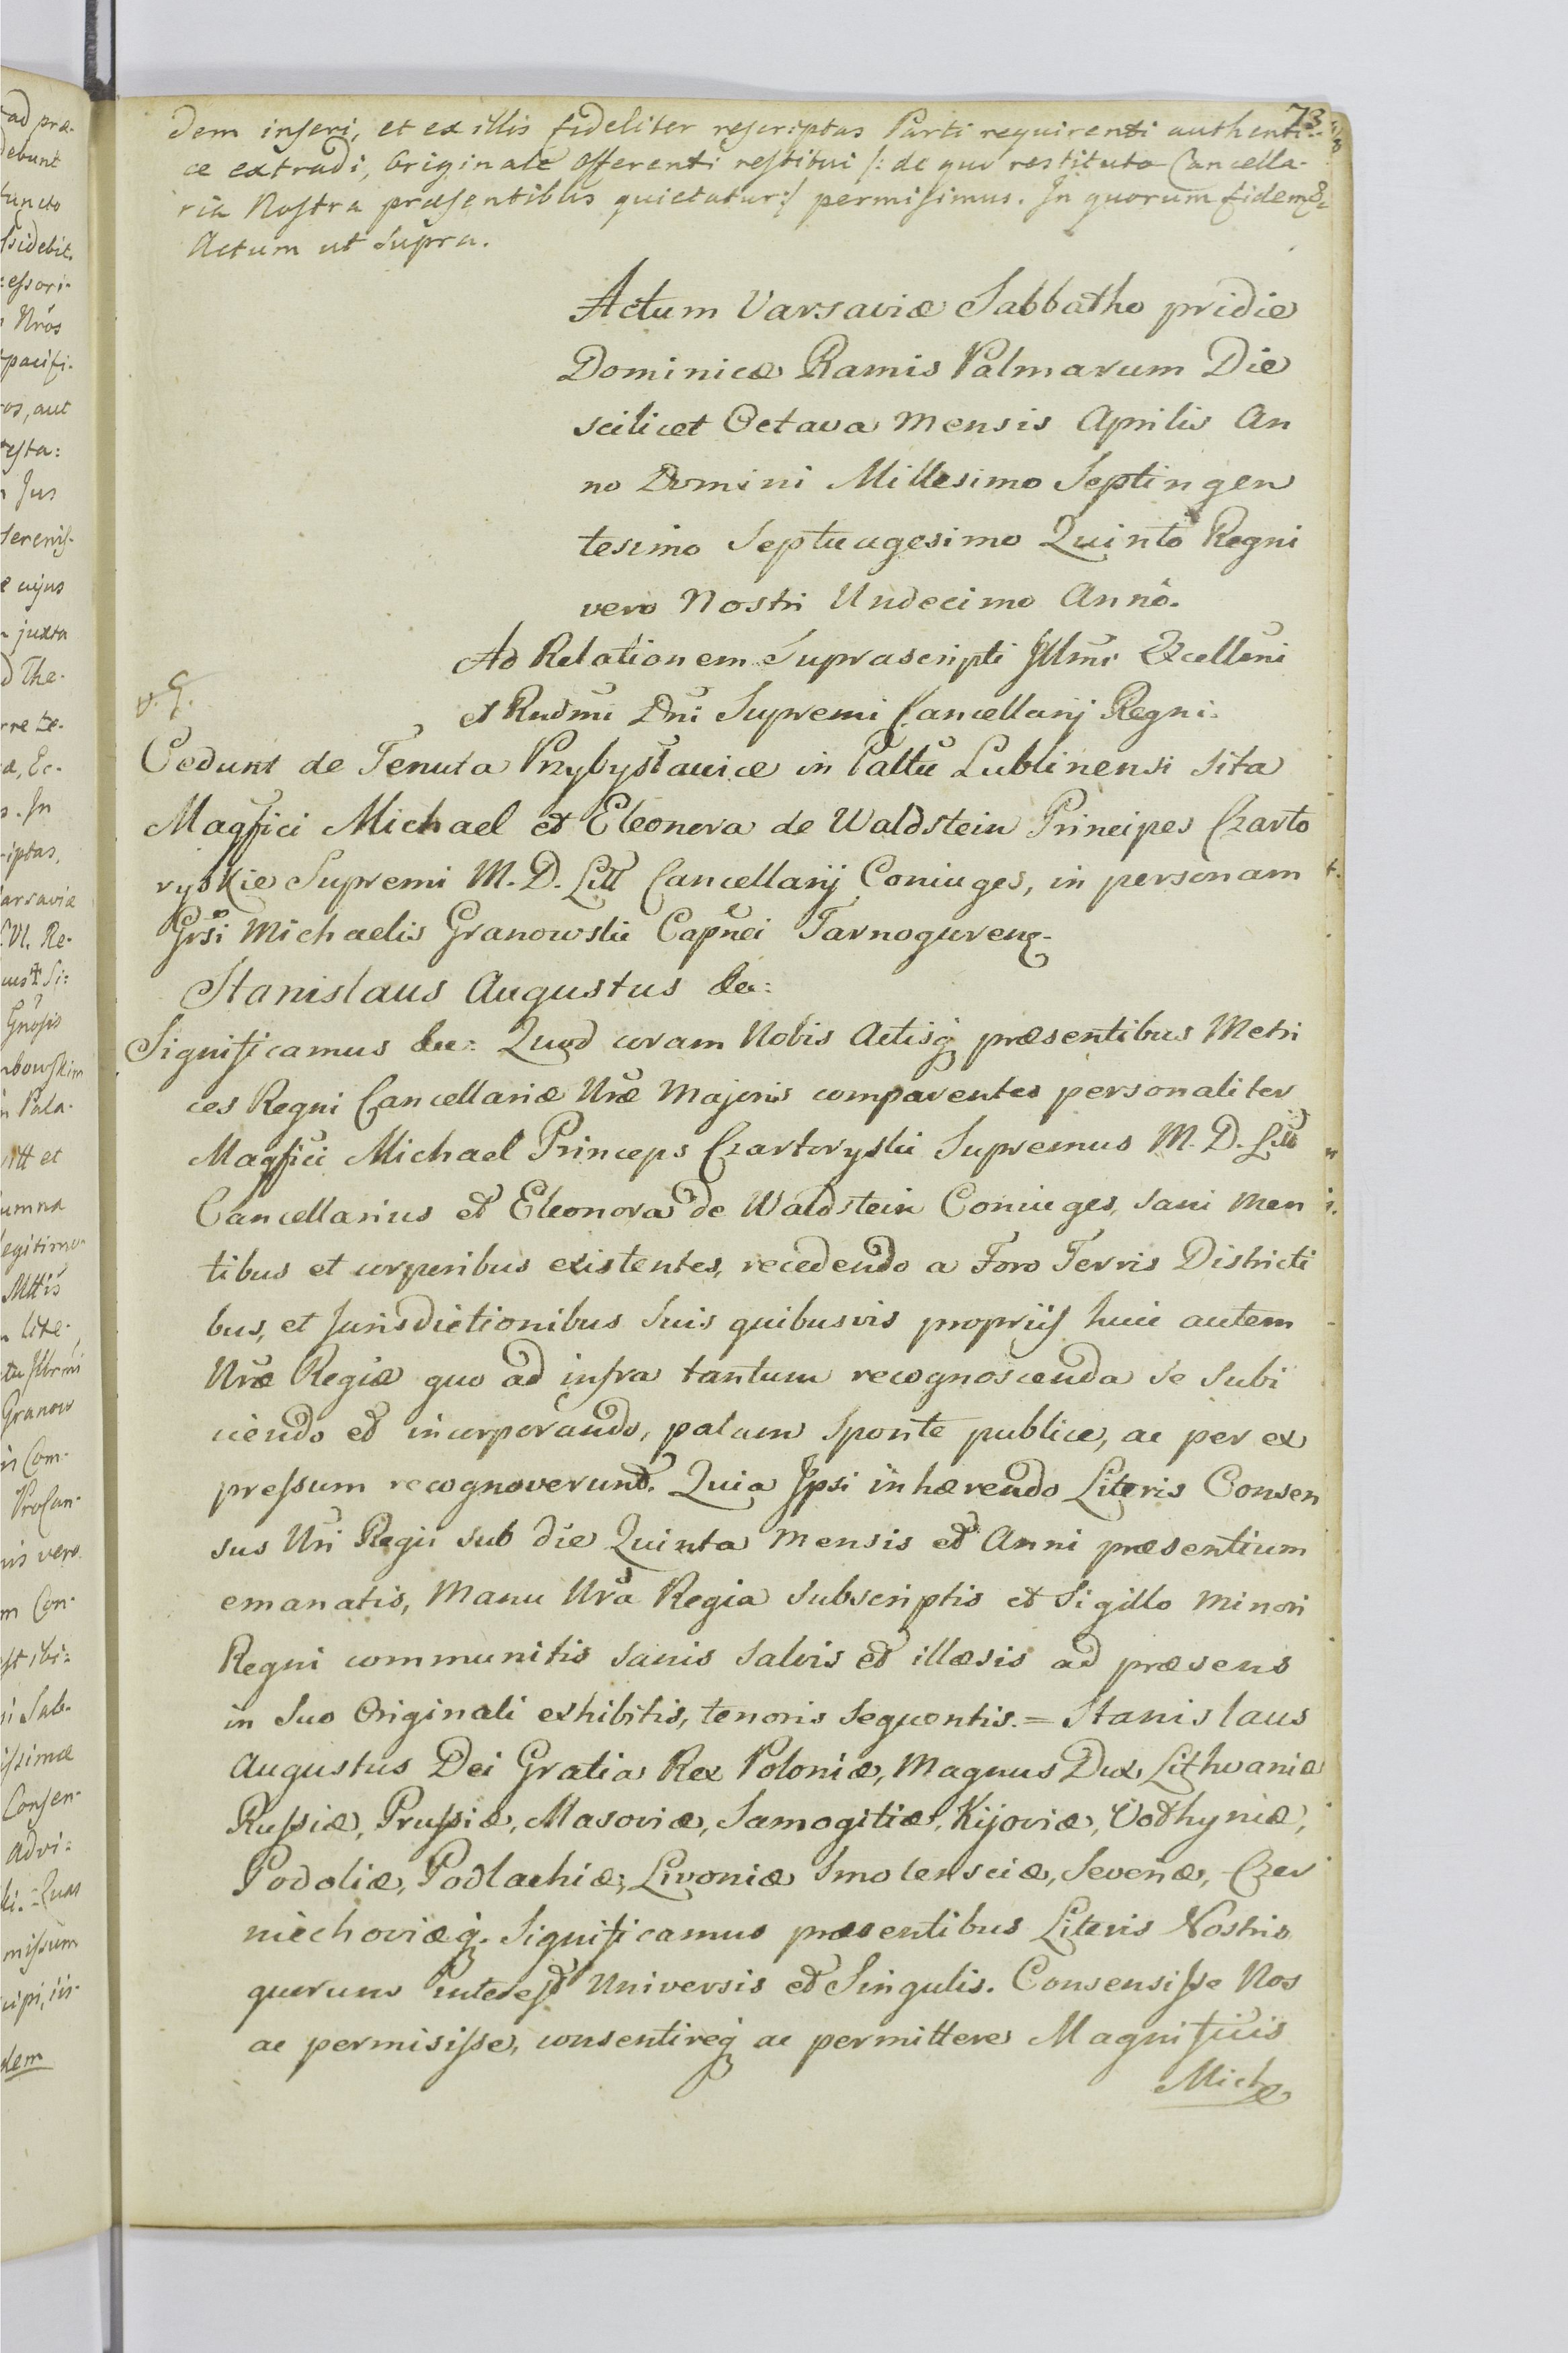 73
dem inseri, et ex illis fideliter rescriptas Parti requirenti authenti-
ce extradi, Originale Offerenti restitui /: de quo restituto Cancella-
ria Nostra præsentibus quietatur :/ permisimus. In quorum fidem &
Actum ut Supra.
Actum Varsaviæ Sabbatho pridie
Dominicæ Ramis Palmarum Die
scilicet Octava Mensis Aprilis An
no Domini Millesimo Septingen
tesimo Septuagesimo Quinto Regni
vero Nostri Undecimo Anno.
Ad Relationem Suprascripti Illmi Excellmi
et Rndmi Dni Supremi Cancellarij Regni.
Cedunt de Tenuta Przybysławice in Palltu Lublinensi sita
Magfici Michael et Eleonora de Waldstein Principes Czarto
ryskie Supremi M. D. Litt Cancellarij Coniuges, in personam
Grsi Michaelis Granowski Capnei Tarnoguren.
Stanislaus Augustus &a:
Significamus &a: Quod coram Nobis Actisq præsentibus Metri
ces Regni Cancellariæ Nræ Majoris comparentes personaliter
Magfici Michael Princeps Czartoryski Supremus M. D. Litt
Cancellarius et Eleonora de Waldstein Coniuges, sani Men
tibus et corporibus existentes, recedendo a Foro Terris Districti
bus, et Jurisdictionibus Suis quibusvis proprijs huic autem
Nræ Regiæ quo ad infra tantum recognoscenda se Subi
ciendo et incorporando, palam Sponte publice, ac per ex
pressum recognoverunt. Quia Ipsi inhærendo Literis Consen
sus Nri Regii sub die Quinta Mensis et Anni præsentium
emanatis, Manu Nra Regia Subscriptis et Sigillo Minori
Regni communitis sanis salvis et illæsis ad præsens
in Suo Originali exhibitis, tenoris Sequentis. = Stanislaus
Augustus Dei Gratia Rex Poloniæ, Magnus Dux Lithvaniæ
Russiæ, Prussiæ, Masoviæ, Samogitiæ, Kijoviæ, Volhyniæ,
Podoliæ, Podlachiæ, Livoniæ Smolensciæ, Severiæ, Czer
niechoviæq. Significamus præsentibus Literis Nostris
quorum interest Universis et Singulis. Consensisse Nos
ac permisisse, consentireq ac permittere Magnificis
Mich